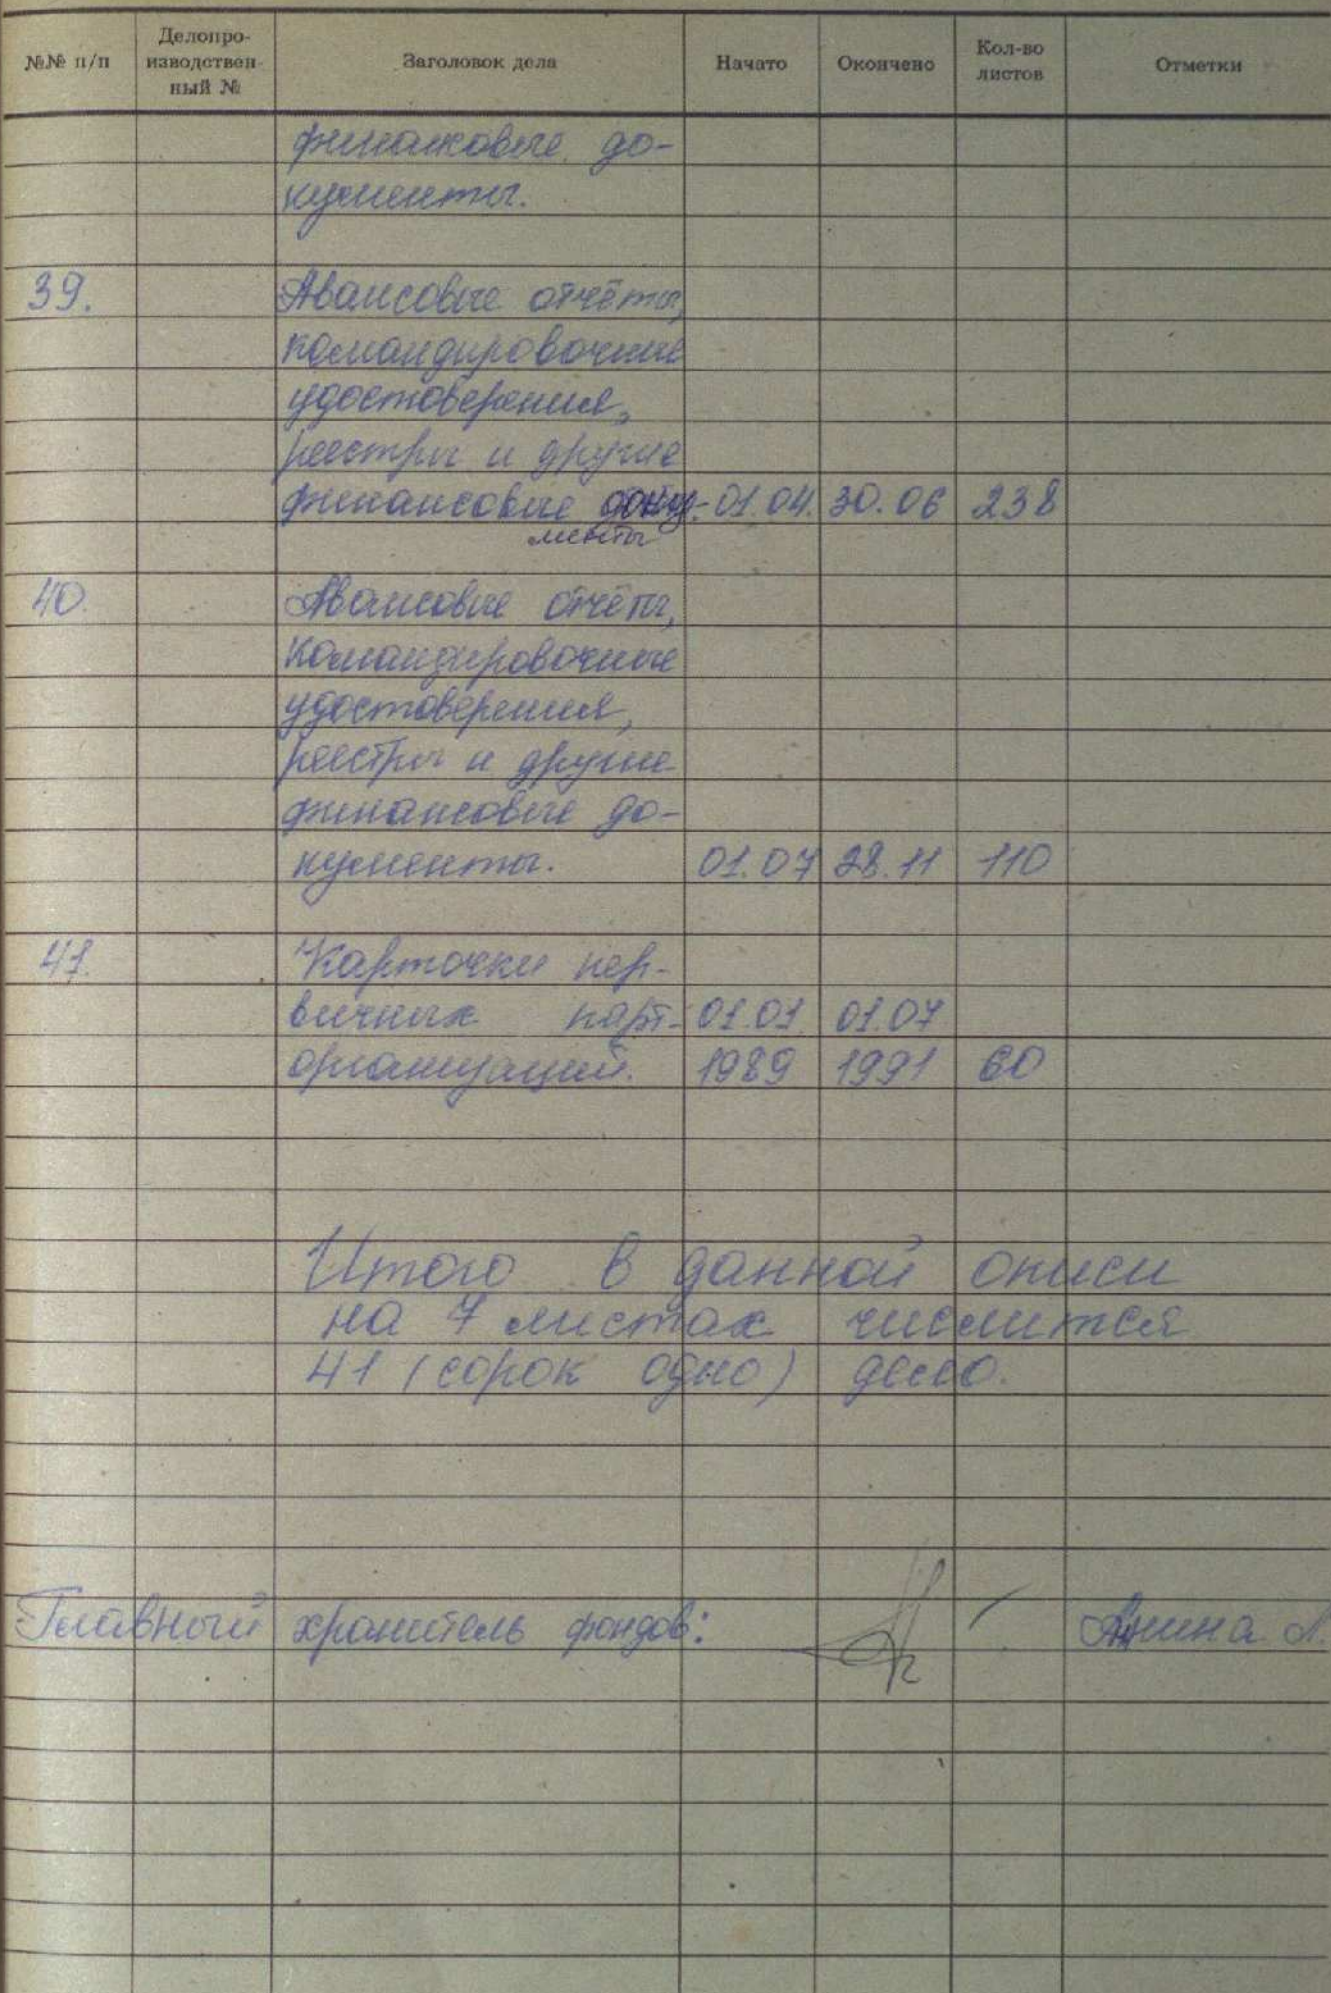 №№ п/п Делопро-изводствен-ный № Заголовок дела Начато Окончено Кол-во листов Отметки
финансовые до-
кументы.
39. Авансовые отчёты,
командировочные
удостоверения,
реестры и другие
финансовые доку- 01.04. 30.06 238
менты
40. Авансовые отчёты,
командировочные
удостоверения,
реестры и другие
финансовые до-
кументы. 01.07 28.11 110
41. Карточки пер-
вичных парт- 01.01 01.07
организаций. 1989 1991 60
Итого в данной описи
на 7 листах числится
41 (сорок одно) дело.
Главный хранитель фондов: Анина Л.